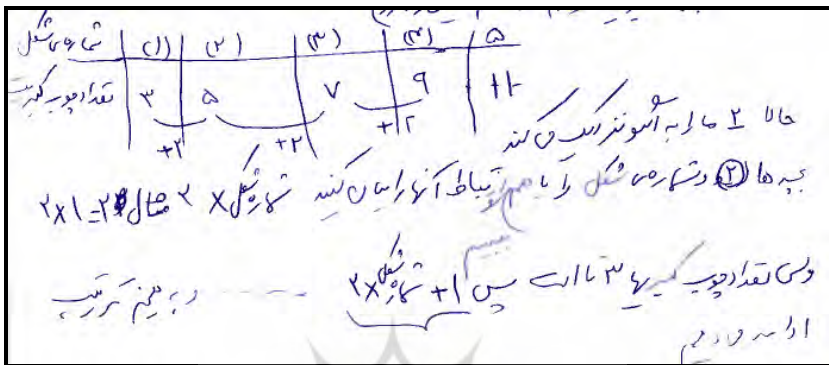 شماره شکل | (۱) | (۲) | (۳) | (۴) | ۵
تعداد چوب کبریت | ۳ | ۵ | ۷ | ۹ | ۱۱
+۲ +۲ +۲
حالا ۲ ما را به آموزند کمک می کند
بچه ها ۲ و شماره ی شکل را با هم ارتباط آنها را بیان کنید شماره شکل × ۲ مثال ۲×۱=۲
ولی تعداد چوب کبریتها ۳ تا است پس ۱+ شماره شکل ×۲ و به همین ترتیب
ادامه می دهیم